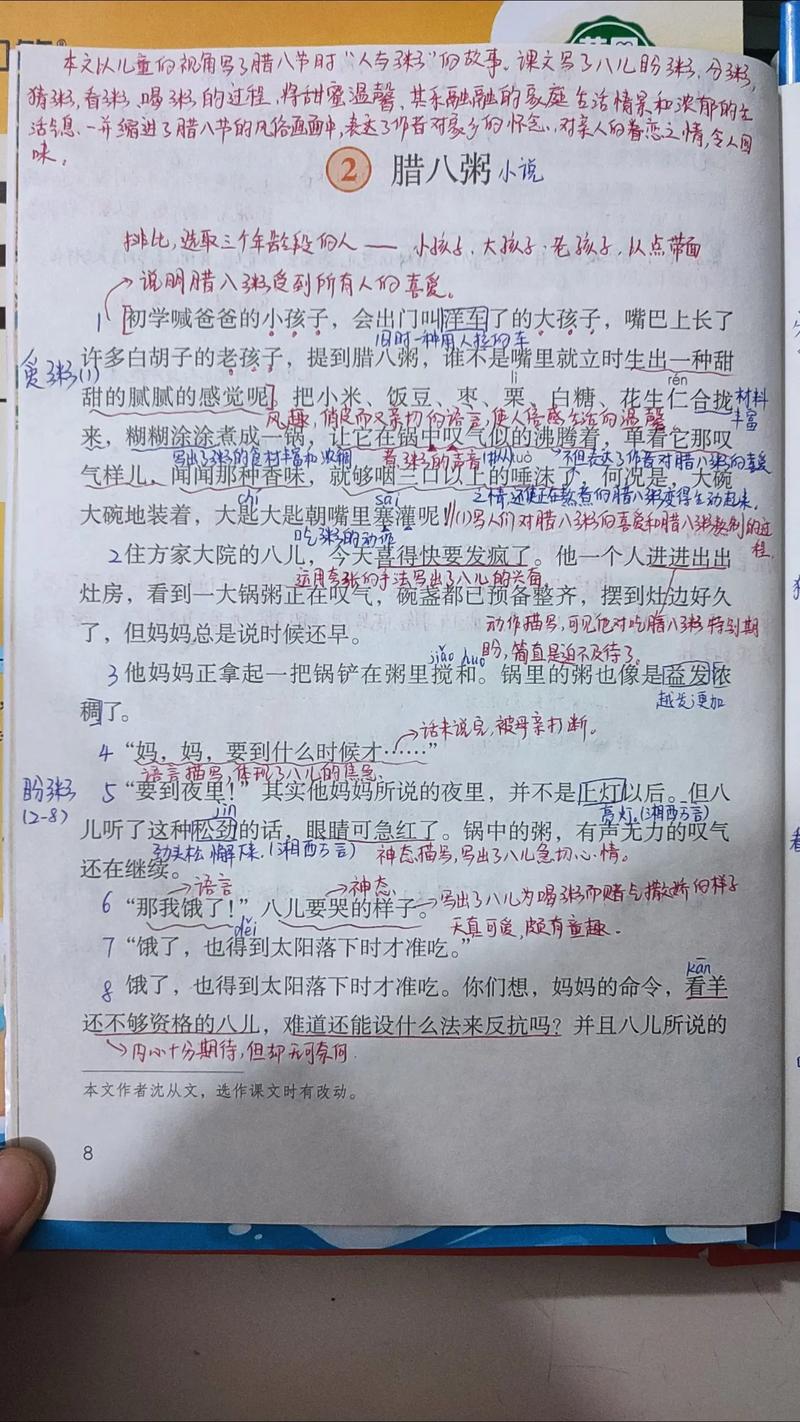 本文以儿童的视角写了腊八节时“人与粥”的故事。课文写了八儿盼粥、分粥、
猜粥、看粥、喝粥的过程，将甜蜜温馨、其乐融融的家庭生活情景和浓郁的生
活气息一并缩进了腊八节的风俗画面中，表达了作者对家乡的怀念、对亲人的眷恋之情，令人回
味。
2 腊八粥 小说
排比，选取三个年龄段的人——小孩子、大孩子、老孩子，从点带面
说明腊八粥受到所有人的喜爱。
1 初学喊爸爸的小孩子，会出门叫洋车了的大孩子，嘴巴上长了
旧时一种用人拉的车
煮粥(1)
许多白胡子的老孩子，提到腊八粥，谁不是嘴里就立时生出一种甜
lì rén
甜的腻腻的感觉呢。把小米、饭豆、枣、栗、白糖、花生仁合拢
材料丰富
风趣，俏皮而又亲切的语言，使人倍感生活的温馨。
来，糊糊涂涂煮成一锅，让它在锅中叹气似的沸腾着，单看它那叹
写出了粥的食材丰富和浓稠
煮粥的声音
不但表达了作者对腊八粥的喜爱
气样儿，闻闻那种香味，就够咽三口以上的唾沫了，何况是，大碗
之情，还使正在熬煮的腊八粥变得生动起来。
chí sāi
大碗地装着，大匙大匙朝嘴里塞灌呢！
(1)写人们对腊八粥的喜爱和腊八粥熬制的过程。
吃粥的动作
2 住方家大院的八儿，今天喜得快要发疯了。他一个人进进出出
运用夸张的手法写出了八儿的兴奋。
灶房，看到一大锅粥正在叹气，碗盏都已预备整齐，摆到灶边好久
了，但妈妈总是说时候还早。
动作描写，可见他对吃腊八粥特别期
盼，简直是迫不及待了。
jiǎo huo
3 他妈妈正拿起一把锅铲在粥里搅和。锅里的粥也像是益发浓
越发更加
稠了。
4 “妈，妈，要到什么时候才……”
话未说完，被母亲打断。
语言描写，体现了八儿的焦急。
盼粥
(2-8)
5 “要到夜里！”其实他妈妈所说的夜里，并不是上灯以后。但八
jìn
儿听了这种松劲的话，眼睛可急红了。锅中的粥，有声无力的叹气
劲头松懈下来。（湘西方言）
神态描写，写出了八儿急切心情。
还在继续。
语言
神态
6 “那我饿了！”八儿要哭的样子。
写出了八儿为喝粥而赌气撒娇的样子
天真可爱，颇有童趣。
děi
7 “饿了，也得到太阳落下时才准吃。”
kān
8 饿了，也得到太阳落下时才准吃。你们想，妈妈的命令，看羊
还不够资格的八儿，难道还能设什么法来反抗吗？并且八儿所说的
内心十分期待，但却无可奈何
本文作者沈从文，选作课文时有改动。
8